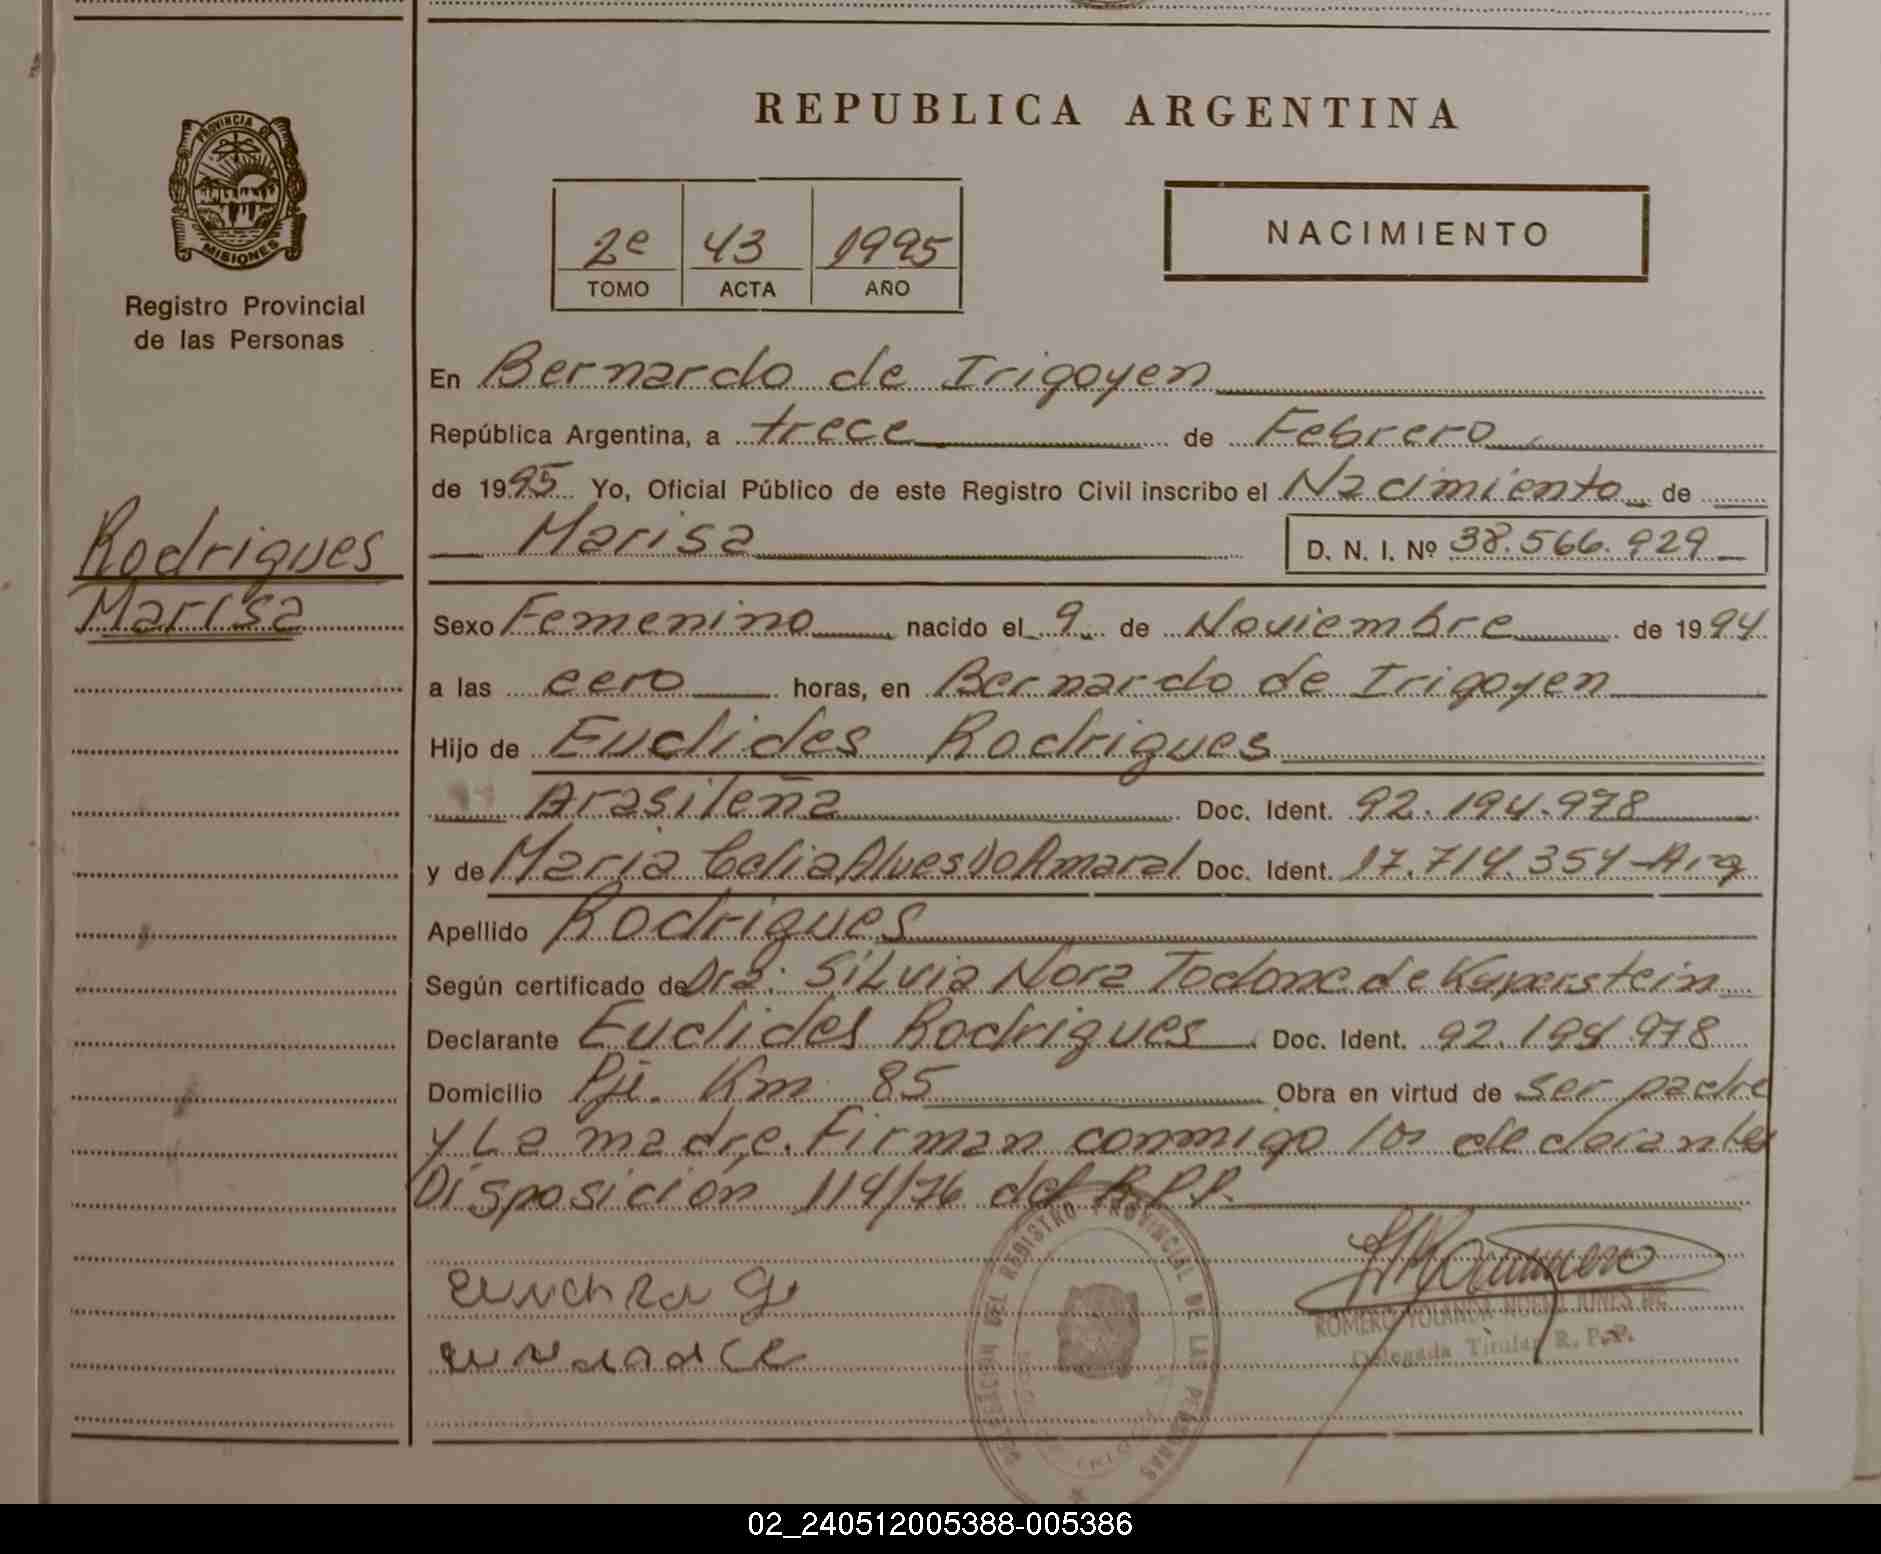 REPUBLICA ARGENTINA
PROVINCIA DE
MISIONES
Registro Provincial
de las Personas
2e 43 1995
TOMO ACTA AÑO
NACIMIENTO
En Bernardo de Irigoyen
República Argentina, a trece de Febrero
de 1995 Yo, Oficial Público de este Registro Civil inscribo el Nacimiento de
Marisa D. N. I. Nº 38.566.929
Rodrigues
Marisa
Sexo Femenino nacido el 9 de Noviembre de 1994
a las cero horas, en Bernardo de Irigoyen
Hijo de Euclides Rodrigues
Brasileña Doc. Ident. 92.194.978
y de Maria Celia Alves Do Amaral Doc. Ident. 17.714.354-Arg
Apellido Rodrigues
Según certificado de Dra: Silvia Nora Todone de Kuperstein
Declarante Euclides Rodrigues Doc. Ident. 92.194.978
Domicilio Pje. Km 85 Obra en virtud de ser padre
y La madre. Firman conmigo los declarantes
Disposición 114/76 del R.P.P.
DEL REGISTRO PROVINCIAL DE LAS PERSONAS
ROMERO YOLANDA NOEMI
Delegada Titular R. P. P.
02_240512005388-005386